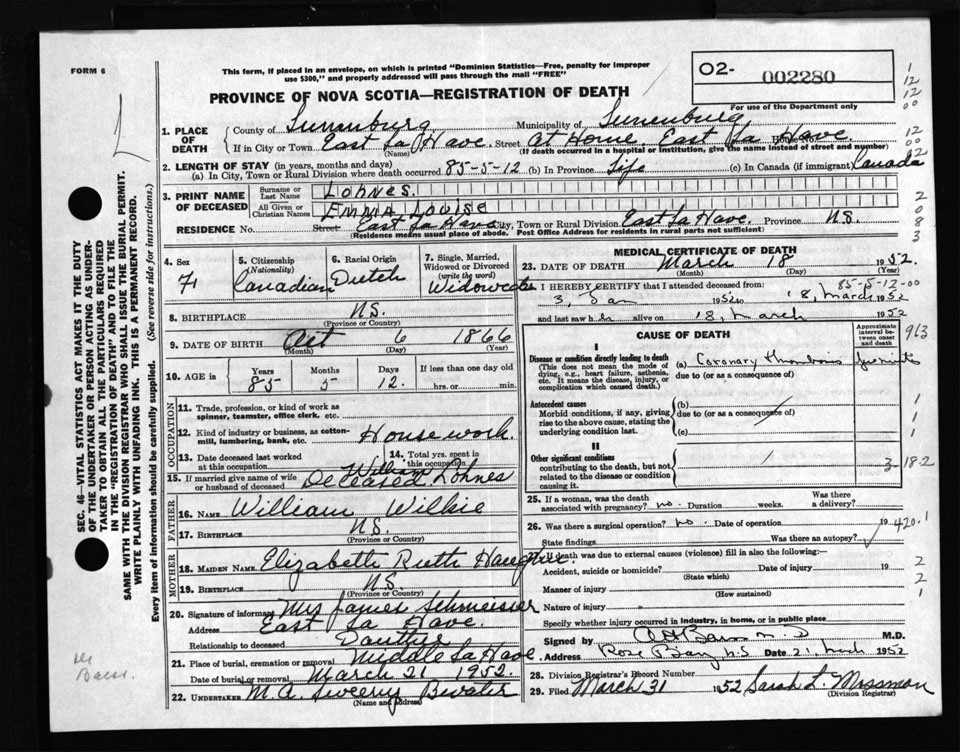 FORM 6
This form, if placed in an envelope, on which is printed "Dominion Statistics—Free, penalty for improper
use $300," and properly addressed will pass through the mail "FREE"
02- 002280
For use of the Department only
PROVINCE OF NOVA SCOTIA—REGISTRATION OF DEATH
SEC. 46—VITAL STATISTICS ACT MAKES IT THE DUTY
OF THE UNDERTAKER OR PERSON ACTING AS UNDER-
TAKER TO OBTAIN ALL THE PARTICULARS REQUIRED
IN THE "REGISTRATION OF DEATH" AND TO FILE THE
SAME WITH THE DIVISION REGISTRAR WHO SHALL ISSUE THE BURIAL PERMIT.
WRITE PLAINLY WITH UNFADING INK. THIS IS A PERMANENT RECORD.
Every item of information should be carefully supplied. (See reverse side for instructions.)
1. PLACE OF DEATH
County of Lunenburg Municipality of Lunenburg
If in City or Town East La Have. Street At Home East La Have. House No.
(Name) (If death occurred in a hospital or institution, give the name instead of street and number)
2. LENGTH OF STAY (in years, months and days)
(a) In City, Town or Rural Division where death occurred 85-5-12 (b) In Province Life (c) In Canada (if immigrant) Canada
3. PRINT NAME OF DECEASED
Surname or Last Name Lohnes.
All Given or Christian Names EMMA LOUISE
RESIDENCE No. Street East La Have City, Town or Rural Division East La Have. Province N.S.
(Residence means usual place of abode. Post Office Address for residents in rural parts not sufficient)
4. Sex F
5. Citizenship (Nationality) Canadian
6. Racial Origin Dutch
7. Single, Married, Widowed or Divorced (write the word) Widowed
8. BIRTHPLACE N.S.
(Province or Country)
9. DATE OF BIRTH Oct 6 1866
(Month) (Day) (Year)
10. AGE in Years 85 Months 5 Days 12. If less than one day old hrs. or min.
OCCUPATION
11. Trade, profession, or kind of work as spinner, teamster, office clerk, etc.
12. Kind of industry or business, as cotton-mill, lumbering, bank, etc. House work.
13. Date deceased last worked at this occupation
14. Total yrs. spent in this occupation
15. If married give name of wife or husband of deceased William Deceased Lohnes
FATHER
16. NAME William Wilkie
17. BIRTHPLACE N.S.
(Province or Country)
MOTHER
18. MAIDEN NAME Elizabeth Ruth
19. BIRTHPLACE N.S.
(Province or Country)
20. Signature of informant Mrs James Schmeisser
Address East La Have.
Relationship to deceased Dauther
21. Place of burial, cremation or removal Middle La Have
Date of burial or removal March 21 1952.
22. UNDERTAKER M.A. Sweeny
(Name and address)
MEDICAL CERTIFICATE OF DEATH
23. DATE OF DEATH March 18 1952.
(Month) (Day) (Year)
85-5-12-00
I HEREBY CERTIFY that I attended deceased from:
3, Jan 1952 to 18, March 1952
and last saw her alive on 18, March 1952
CAUSE OF DEATH
Approximate interval between onset and death
I
Disease or condition directly leading to death
(This does not mean the mode of dying, e.g., heart failure, asthenia, etc. It means the disease, injury, or complication which caused death.)
(a) Coronary thrombosis few minutes
due to (or as a consequence of)
Antecedent causes
Morbid conditions, if any, giving rise to the above cause, stating the underlying condition last.
(b)
due to (or as a consequence of)
(c)
II
Other significant conditions
contributing to the death, but not related to the disease or condition causing it.
3-18-2
25. If a woman, was the death associated with pregnancy? no. Duration weeks. Was there a delivery?
26. Was there a surgical operation? no. Date of operation 19
420.1
State findings Was there an autopsy?
27. If death was due to external causes (violence) fill in also the following:
Accident, suicide or homicide? Date of injury 19
(State which)
Manner of injury
(How sustained)
Nature of injury
Specify whether injury occurred in industry, in home, or in public place
Signed by M.D. M.D.
Address Rose Bay N.S Date 21, March 1952
28. Division Registrar's Record Number
29. Filed March 31 1952 Sarah L. Mossman
(Division Registrar)